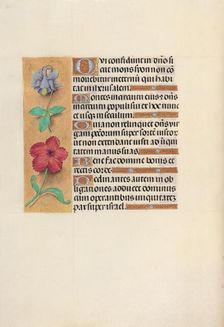 Qui confidunt in dño si
cut mons syon non cõ
mouebitur in eternũ qui habi
tat in iherusalem
Montes in circuitu eius et dñs
in circuitu populi sui ex hoc
nunc et usq in seculum
Quia non relinquet dñs virgam
peccatorum super sortẽ iustor
ut non extendant iusti ad iniqui
tatem manus suas
Benefac domine bonis et
rectis corde
Declinantes autem in ob
ligationes adducet dominus
cum operantibus iniquitatem
pax super israel